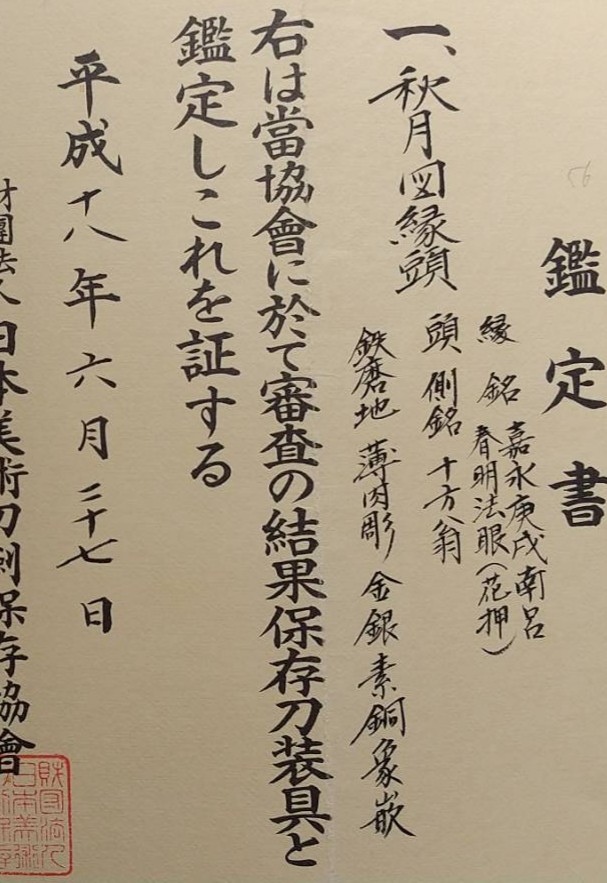 鑑定書
一、秋月図縁頭
縁 銘 嘉永庚戌南呂
春明法眼(花押)
頭 側銘 十方翁
鉄磨地 薄肉彫 金銀素銅象嵌
右は當協會に於て審査の結果保存刀装具と
鑑定しこれを証する
平成十八年六月二十七日
財團法人日本美術刀剣保存協會
56